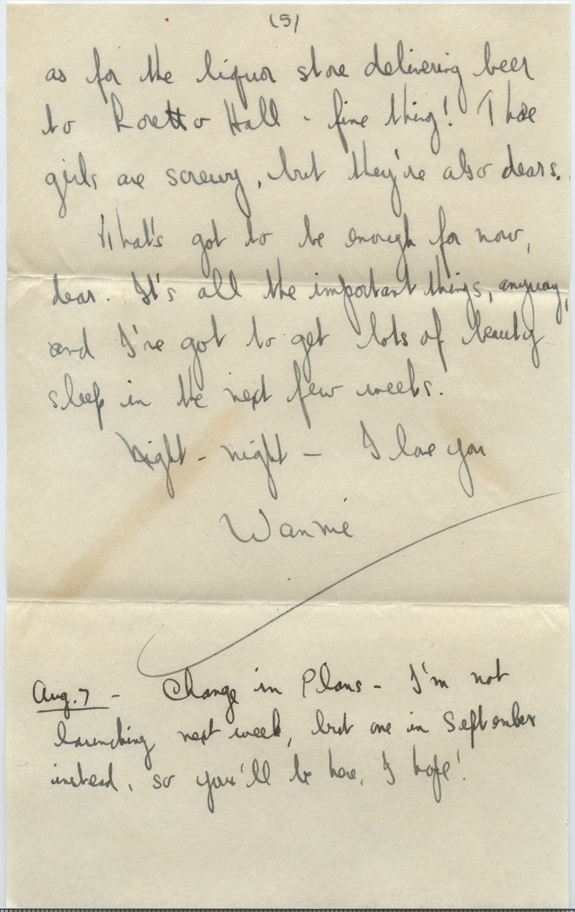 (5)
as for the liquor store delivering beer
to Loretto Hall - fine thing! Those
girls are screwy, but they're also dears.
That's got to be enough for now,
dear. It's all the important things, anyway,
and I've got to get lots of beauty
sleep in the next few weeks.
Night - night - I love you
Wannie
Aug. 7 - Change in Plans - I'm not
launching next week, but one in September
instead, so you'll be here, I hope!